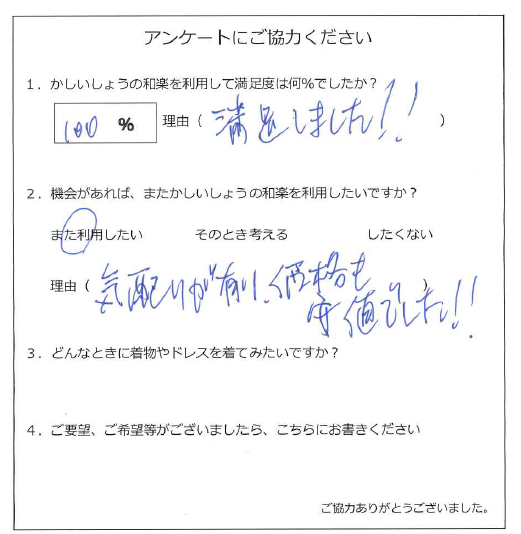 アンケートにご協力ください
1．かしいしょうの和楽を利用して満足度は何％でしたか？
100 ％ 理由（ 満足しました!! ）
2．機会があれば、またかしいしょうの和楽を利用したいですか？
また利用したい そのとき考える したくない
理由（ 気配りが有り、価格も ）
安値でした!!
3．どんなときに着物やドレスを着てみたいですか？
4．ご要望、ご希望等がございましたら、こちらにお書きください
ご協力ありがとうございました。